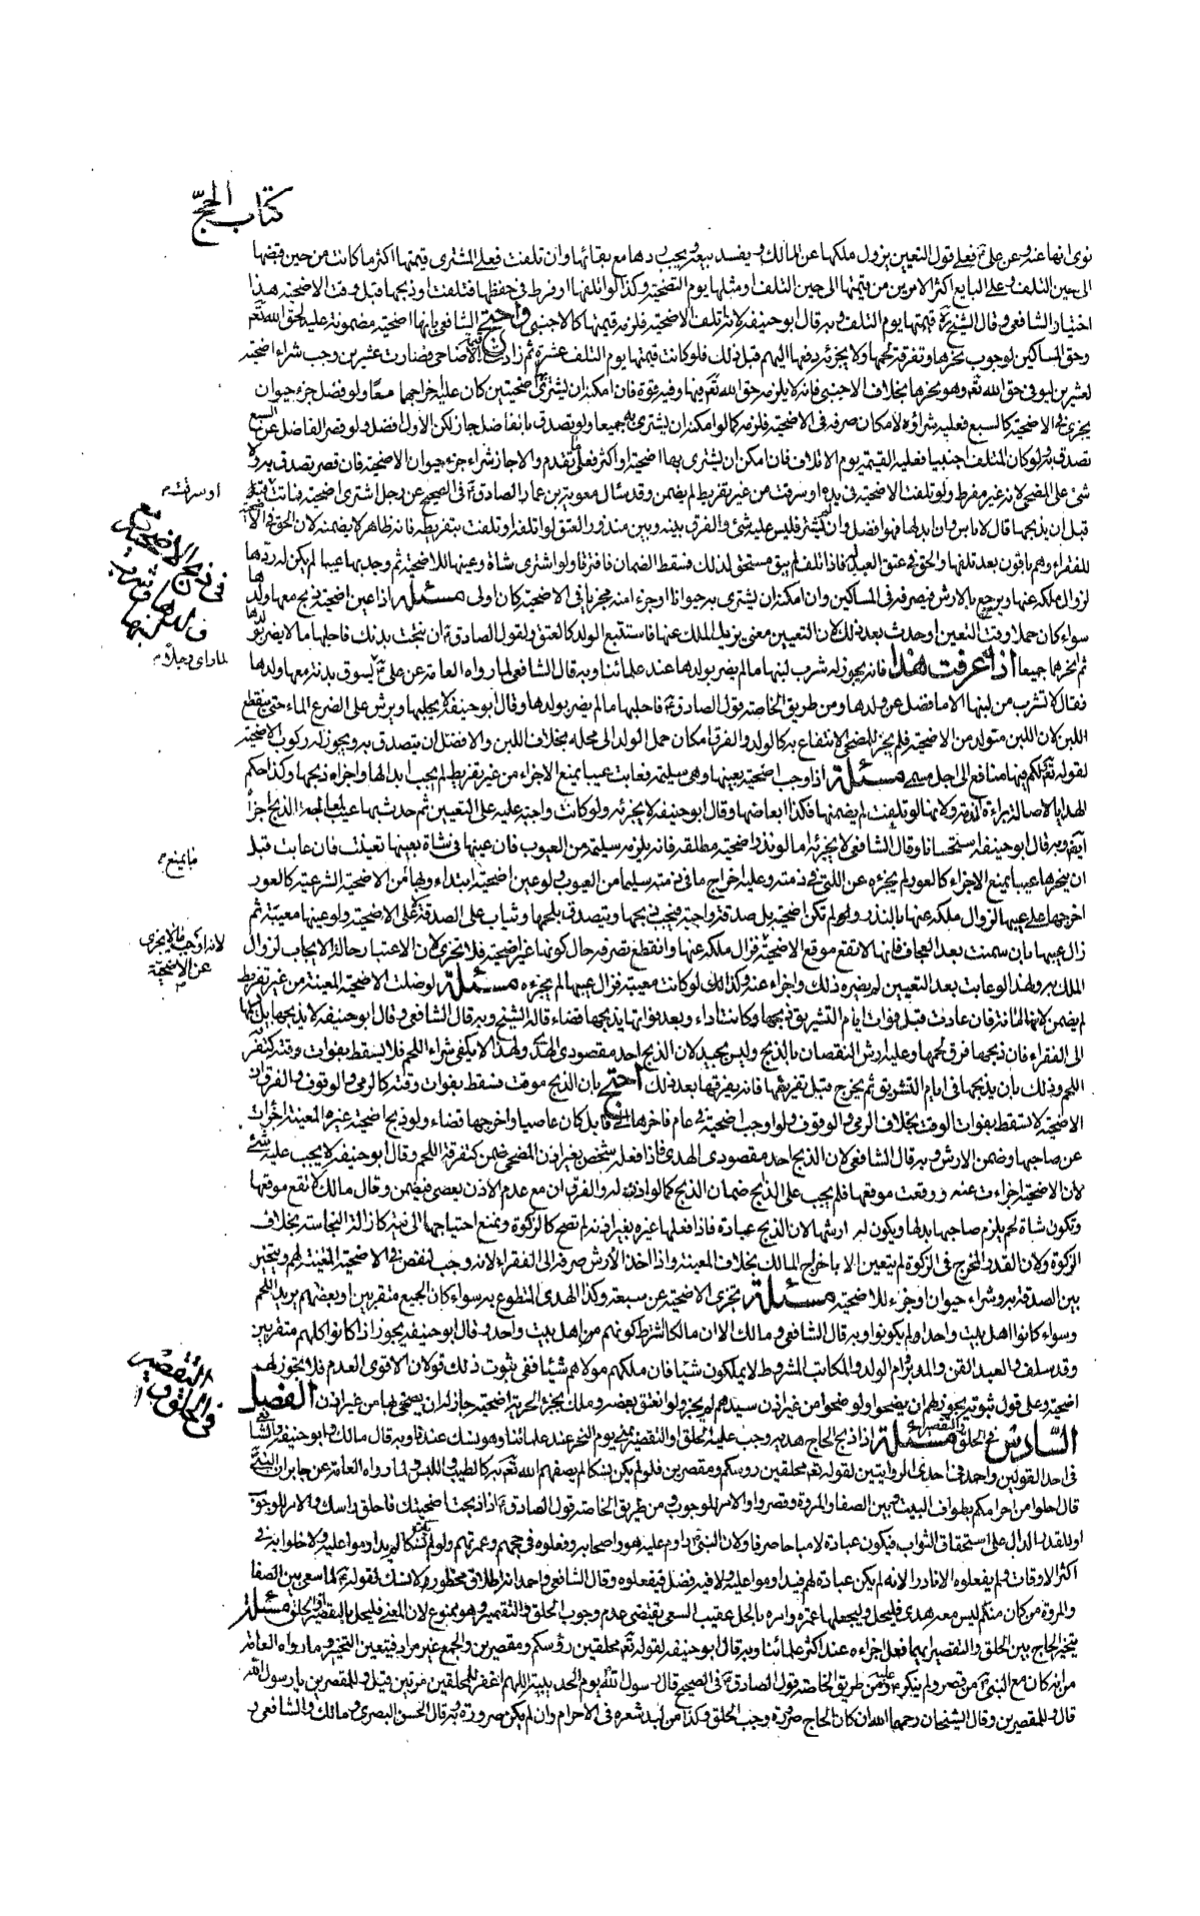 كتاب الحجّ
نوى انها عنه وعن على فعلى قول التعيين يزول ملكها عن المالك ويفسد بيعه ويجب ردها مع بقائها وان تلفت فعلى المشترى قيمتها اكثر ما كانت من حين قبضها
الى حين التلف وعلى البايع اكثر الامرين من قيمتها الى حين التلف او مثلها يوم التضحية وكذا لو اتلفها او فرط فى حفظها فتلفت او ذبحها قبل وقت الاضحية هذا
اختيار الشافعى وقال الشيخ ره قيمتها يوم التلف وبه قال ابوحنيفة لانه اتلف الاضحية فلزمه قيمتها كالاجنبى واحتج الشافعى بانها اضحية مضمونة عليه لحق الله تعم
وحق المساكين لوجوب نحرها وتفرقة لحمها ولا يجزئه دفعها اليهم قبل ذلك فلو كانت قيمتها يوم التلف عشرة ثم زادت قيمة الاضاحى فصارت عشرين وجب شراء اضحية
بعشرين ليوفى حق الله تعم وهو نحرها بخلاف الاجنبى فانه لا يلزمه حق الله تعم فيها وفيه قوة فان امكنه ان يشترى بها اضحيتين كان عليه اخراجهما معًا ولو فضل جزء حيوان
يجزى فى الاضحية كالسبع فعليه شراؤه لامكان صرفه فى الاضحية فلزمه كما لو امكنه ان يشترى به جميعا ولو تصدق بالفاضل جاز لكن الاول افضل ولو قصر الفاضل عن السبع
تصدق به ولو كان المتلف اجنبيا فعليه القيمة يوم الاتلاف فان امكن ان يشترى بها اضحية او اكثر فعلى ما تقدم والا جاز شراء جزء حيوان الاضحية فان قصر تصدق به ولا
شئ على المضحى لانه غير مفرط ولو تلفت الاضحية فى يده او سرقت من غير تفريط لم يضمن وقد سأل معوية بن عمار الصادق ع فى الصحيح عن رجل اشترى اضحية فماتت
قبل ان يذبحها قال لا باس وان ابدلها فهو افضل وان لم يشتر فليس عليه شئ والفرق بينه وبين منذور العتق لو اتلفه او تلفت بتفريطه فانه ظاهر لا يضمنه لان الحق فى الاضحية
للفقراء وهم باقون بعد تلفها والحق فى عتق العبد له فاذا تلف لم يبق مستحق لذلك فسقط الضمان فافترقا ولو اشترى شاة وعينها للاضحية ثم وجد بها عيبا لم يكن له ردها
لزوال ملكه عنها ويرجع بالارش فيصرفه فى المساكين وان امكنه ان يشترى به حيوانا او جزءا منه مجزيا فى الاضحية كان اولى مسئلة اذا عين اضحية ذبح معها ولدها
سواء كان حملا وقت التعيين او حدث بعد ذلك لان التعيين معنى يزيل الملك عنها فاستتبع الولد كالعتق ولقول الصادق ع ان نتجت بدنتك فاحلبها ما لا يضر بولدها
ثم انحرهما جميعا اذا عرفت هذا فانه يجوز له شرب لبنها ما لم يضر بولدها عند علمائنا وبه قال الشافعى لما رواه العامة عن على ع يسوق بدنة معها ولدها
فقال لا تشرب من لبنها الا ما فضل عن ولدها ومن طريق الخاصة قول الصادق ع فاحلبها ما لم يضر بولدها وقال ابوحنيفة لا يحلبها ويرش على الضرع الماء حتى ينقطع
اللبن لان اللبن متولد من الاضحية فلم يجز للمضحى الانتفاع به كالولد والفرق امكان حمل الولد الى محله بخلاف اللبن والافضل ان يتصدق به ويجوز له ركوب الاضحية
لقوله تعم لكم فيها منافع الى اجل مسمى مسئلة اذا وجب اضحية بعينها وهى سليمة فعابت عيبا يمنع الاجزاء من غير تفريط لم يجب ابدالها واجزاه ذبحها وكذا حكم
الهدايا لاصالة براءة الذمة ولانها لو تلفت لم يضمنها فكذا ابعاضها وقال ابوحنيفة لا يجزئه ولو كانت واجبة عليه على التعيين ثم حدث بها عيب لمعالجة الذبح اجزأ
ايضا وبه قال ابوحنيفة استحسانا وقال الشافعى لا يجزئه اما لو نذر اضحية مطلقة فانه يلزمه سليمة من العيوب فان عينها فى شاة بعينها تعينت فان عابت قبل
ان ينحرها عيبا يمنع الاجزاء كالعور لم يجزه عن التى فى ذمته وعليه اخراج ما فى ذمته سليما من العيوب ولو عين اضحية ابتداء وبها ما يمنع من الاضحية الشرعية كالعور
اخرجها على عيبها لزوال ملكه عنها بالنذر ولم تكن اضحية بل صدقة واجبة فيجب ذبحها ويتصدق بلحمها ويثاب على الصدقة لا على الاضحية ولو عينها معيبة ثم
زال عيبها بان سمنت بعد العجاف فانها لا تقع موقع الاضحية لزوال ملكه عنها وانقطع تصرفه حال كونها غير اضحية فلا تجزى لان الاعتبار حالة الايجاب لزوال
الملك به ولهذا لو عابت بعد التعيين لم يضره ذلك واجزاء عنه وكذلك لو كانت معيبة فزال عيبها لم يجزءه مسئلة لو ضلت الاضحية المعينة من غير تفريط
لم يضمن لانها امانة فان عادت قبل فوات ايام التشريق ذبحها وكانت اداء وبعد فواتها يذبحها قضاء قاله الشيخ وبه قال الشافعى وقال ابوحنيفة لا يذبحها بل يسلمها
الى الفقراء فان ذبحها فرق لحمها وعليه ارش النقصان بالذبح وليس بجيد لان الذبح احد مقصودى الهدى ولهذا لا يكفى شراء اللحم فلا يسقط بفوات وقته كتفرقة
اللحم وذلك بان يذبحها فى ايام التشريق ثم يخرج قبل تفريقها فانه يفرقها بعد ذلك احتج بان الذبح موقت فسقط بفوات وقته كالرمى والوقوف والفرق ان
الاضحية لا تسقط بفوات الوقت بخلاف الرمى والوقوف ولو اوجب اضحية فى عام فاخرها الى قابل كان عاصيا واخرجها قضاء ولو ذبح اضحية غيره المعينة اجزأت
عن صاحبها وضمن الارش وبه قال الشافعى لان الذبح احد مقصودى الهدى فاذا فعله شخص بغير اذن المضحى ضمن كتفرقة اللحم وقال ابوحنيفة لا يجب عليه شئ
لان الاضحية اجزاءت عنه ووقعت موقعها فلم يجب على الذابح ضمان الذبح كما لو اذن له والفرق ان مع عدم الاذن يعصى فيضمن وقال مالك لا تقع موقعها
وتكون شاة لحم يلزم صاحبها بدلها ويكون له ارشها لان الذبح عبادة فاذا فعلها غيره بغير اذنه لم تصح كالزكوة ونمنع احتياجها الى نية كازالة النجاسة بخلاف
الزكوة ولان القدر المخرج فى الزكوة لم يتعين الا باخراج المالك بخلاف المعينة واذا اخذ الارش صرفه الى الفقراء لانه وجب لنقص فى الاضحية المعينة لهم ويتخير
بين الصدقة به وشراء حيوان او جزء للاضحية مسئلة تجزى الاضحية عن سبعة وكذا الهدى المتطوع به سواء كان الجميع متقربين او بعضهم يريد اللحم
وسواء كانوا اهل بيت واحد او لم يكونوا وبه قال الشافعى ومالك الا ان مالكا شرط كونهم من اهل بيت واحد وقال ابوحنيفة يجوز اذا كانوا كلهم متقربين
وقد سلف والعبد القن والمدبر وام الولد والمكاتب المشروط لا يملكون شيئا فان ملكهم مولاهم شيئا ففى ثبوت ذلك قولان الاقوى العدم فلا يجوز لهم
اضحية وعلى قول ثبوته يجوز لهم ان يضحوا ولو ضحوا من غير اذن سيدهم لم يجز ولو انعتق بعضه وملك بجزئه الحرية اضحية جاز له ان يضحى بها من غير اذن الفصل
السّادس فى الحلق والتقصير مسئلة اذا ذبح الحاج هديه وجب عليه الحلق او التقصير بمنى يوم النحر عند علمائنا وهو نسك عندنا وبه قال مالك وابوحنيفة والشافعى
فى احد القولين واحمد فى احدى الروايتين لقوله تعم محلقين رؤسكم ومقصرين فلو لم يكن نسكا لم يصفهم الله تعم به كالطيب واللبس ولما رواه العامة عن جابر ان النبى ص
قال احلوا من احرامكم بطواف البيت وبين الصفا والمروة وقصروا والامر للوجوب ومن طريق الخاصة قول الصادق ع اذا ذبحت اضحيتك فاحلق راسك والامر للوجوب
او للقدر الدال على استحقاق الثواب فيكون عبادة لا مباحا صرفا ولان النبى ص داوم عليه هو واصحابه وفعلوه فى حجهم وعمرتهم ولو لم يكن نسكا لم يداوموا عليه ولا خلوا به فى
اكثر الاوقات ولم يفعلوه الا نادرا لانه لم يكن عبادة لهم فيداوموا عليه ولا فيه فضل فيفعلوه وقال الشافعى واحمد انه اطلاق محظور لا نسك لقوله ع لما سعى بين الصفا
والمروة من كان منكم ليس معه هدى فليحل وليجعلها عمرة وامره بالحل عقيب السعى يقتضى عدم وجوب الحلق والتقصير وهو ممنوع لان المعنى فليحل بالتقصير او الحلق مسئلة
يتخير الحاج بين الحلق والتقصير ايهما فعل اجزاءه عند اكثر علمائنا وبه قال ابوحنيفة لقوله تعم محلقين رؤسكم ومقصرين والجمع غير مراد فيتعين التخيير وما رواه العامة
من انه كان مع النبى ص من قصر ولم ينكر عليه ومن طريق الخاصة قول الصادق ع فى الصحيح قال رسول الله يوم الحديبية اللهم اغفر للمحلقين مرتين قيل وللمقصرين يا رسول الله
قال وللمقصرين وقال الشيخان رحمهما الله ان كان الحاج صرورة وجب الحلق وكذا من لبد شعره فى الاحرام وان لم يكن صرورة وبه قال الحسن البصرى ومالك والشافعى و
او سرقت
فى ذبح الاضحية مع
ولدها وشرب
لبنها
لما راى رجلا
ما يمنع
لانه اوجب ما لا يجزى
عن الاضحية
فى الحلق و
التقصير